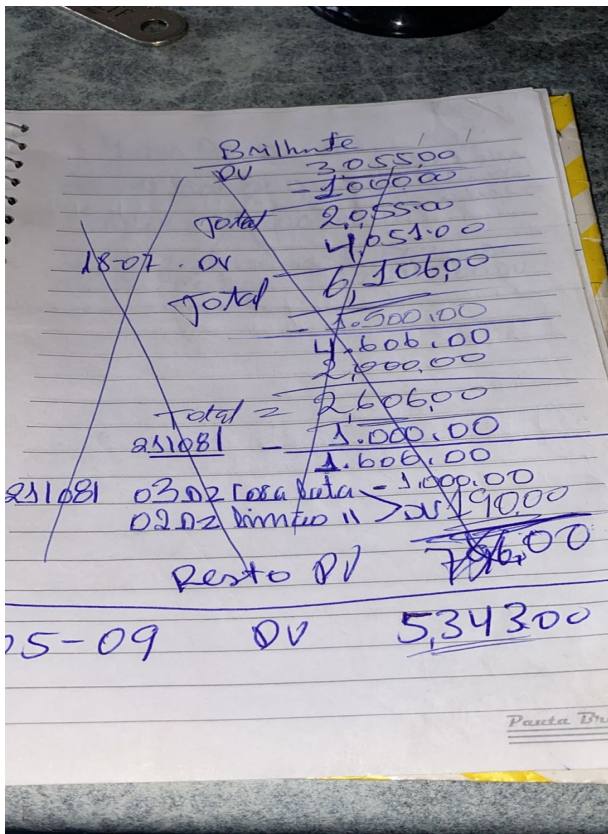 Brilhante / /
DV 3.055.00
- 1.000.00
Total 2,055.00
18-07. DV 4,051.00
Total 6,106,00
- 1.500.00
4.606.00
2,000.00
Total = 2,606,00
211081 - 1.000.00
1.606.00
211081 03 Dz Cosa - 1.000.00
02 Dz 11 > DV 190.00
Resto DV
05-09 DV 5,343.00
Pauta